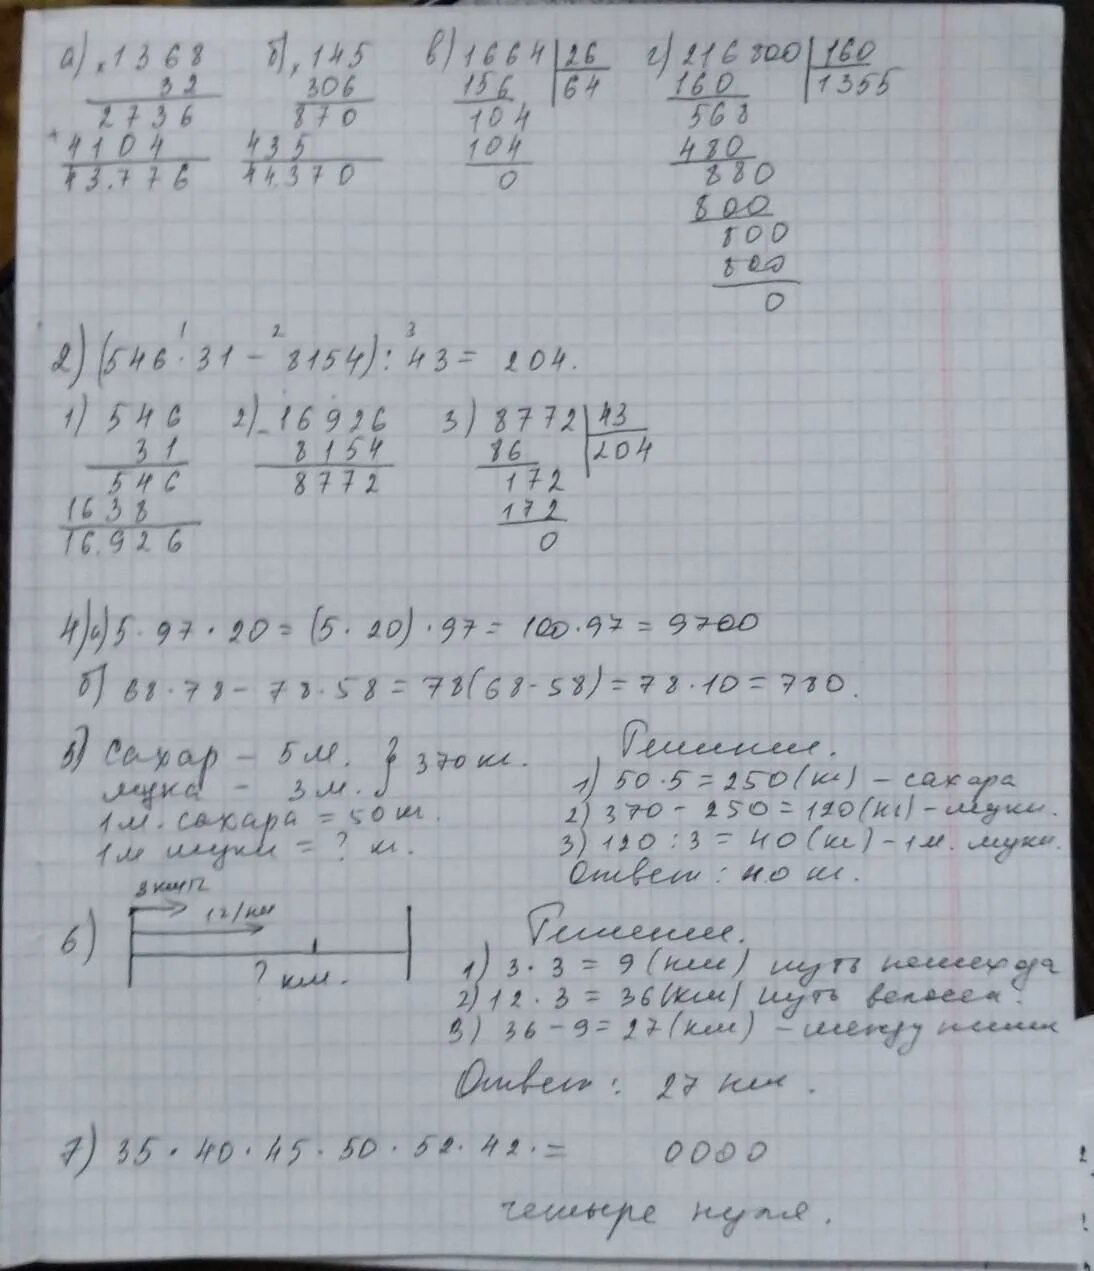 а) × 1368 б) × 145 в) 1664 | 26 г) 216800 | 160
32 306 156 64 160 1355
2736 870 104 568
+ 4104 435 104 480
43.776 44.370 0 880
800
800
800
0
1 2 3
2) (546 · 31 - 8154) : 43 = 204.
1) 546 2) - 16926 3) 8772 | 43
31 8154 86 204
546 8772 172
1638 172
16.926 0
4) а) 5 · 97 · 20 = (5 · 20) · 97 = 100 · 97 = 9700
б) 68 · 78 - 78 · 58 = 78(68 - 58) = 78 · 10 = 780.
5) Сахар - 5 м. } 370 кг. Решение.
мука - 3 м. 1) 50 · 5 = 250 (кг) - сахара
1 м. сахара = 50 кг. 2) 370 - 250 = 120 (кг) - муки.
1 м муки = ? кг. 3) 120 : 3 = 40 (кг) - 1 м. муки.
Ответ: 40 кг.
3 км
12/км
6) Решение.
? км. 1) 3 · 3 = 9 (км) путь пешехода
2) 12 · 3 = 36 (км) путь велосип.
3) 36 - 9 = 27 (км) - между ними
Ответ: 27 км.
7) 35 · 40 · 45 · 50 · 52 · 42 · = 0000
четыре нуля.